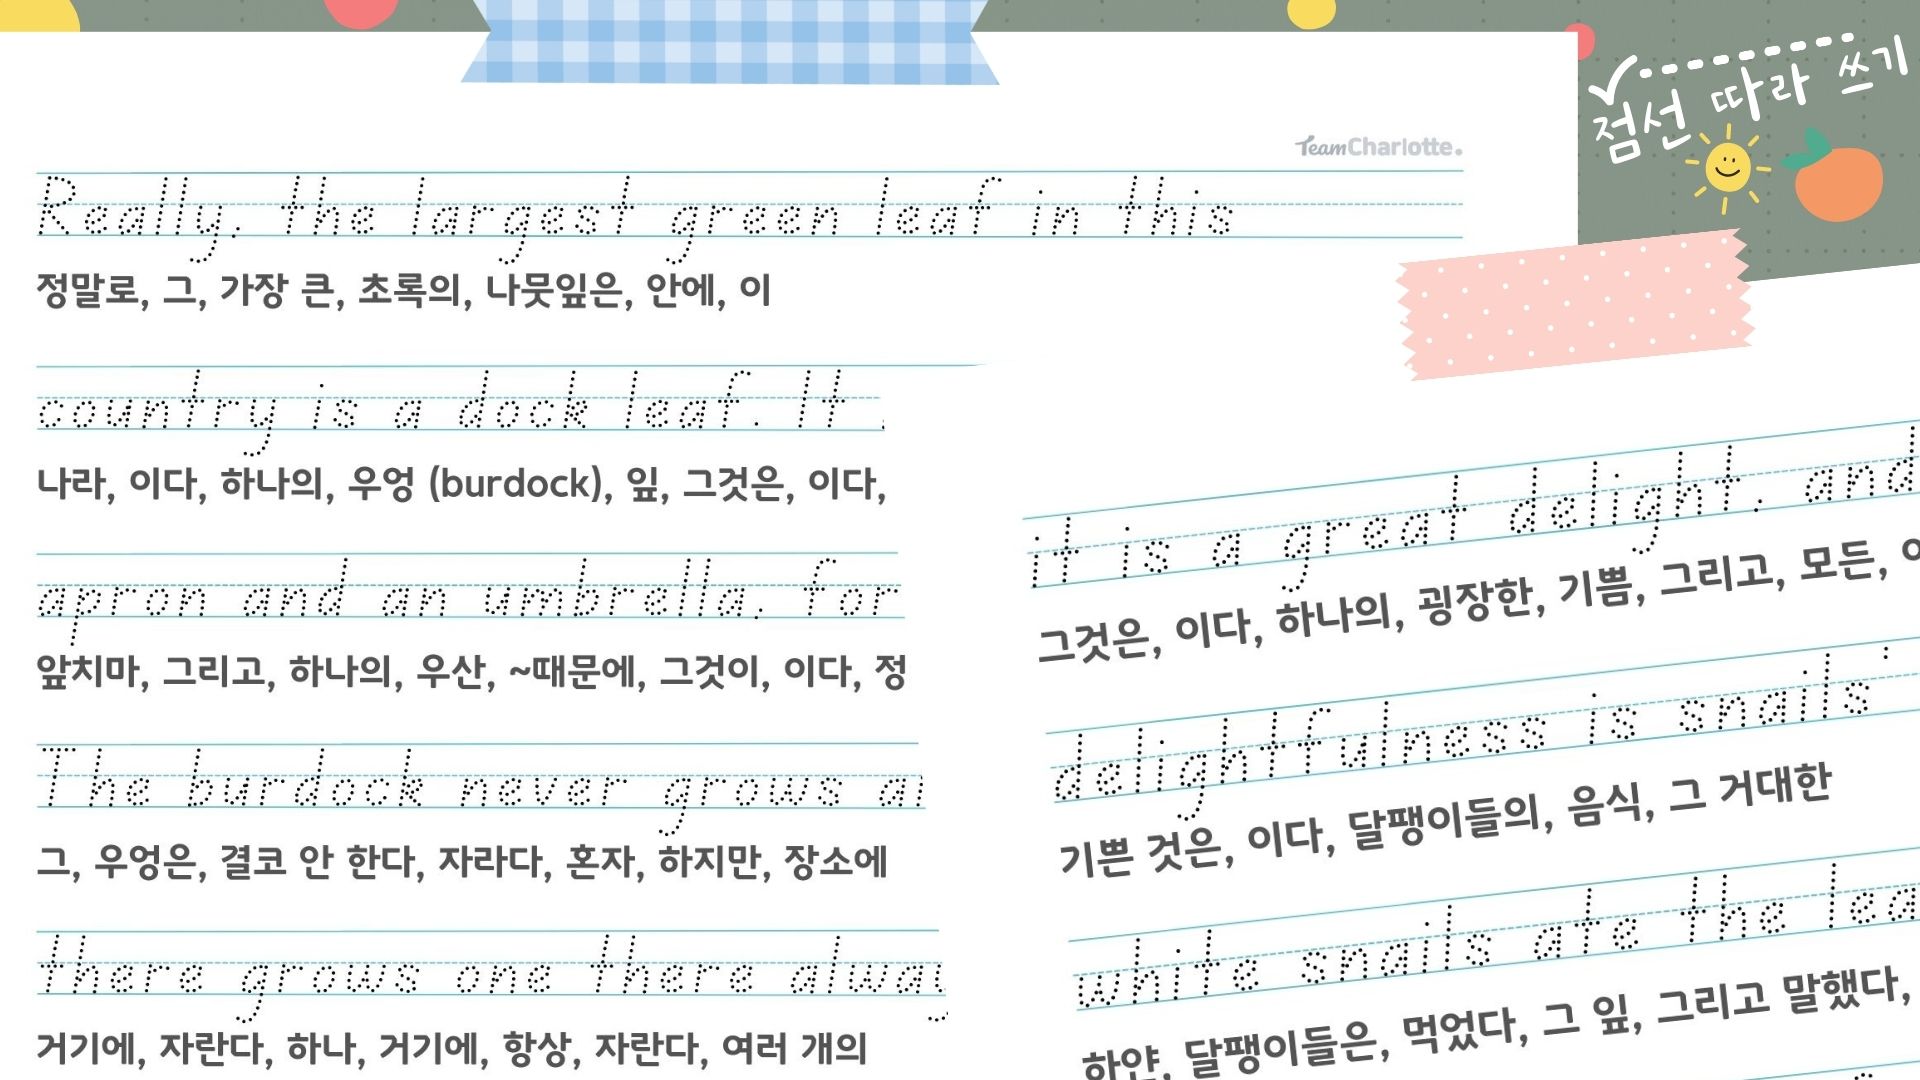 점선 따라 쓰기
TeamCharlotte.
Really, the largest green leaf in this
정말로, 그, 가장 큰, 초록의, 나뭇잎은, 안에, 이
country is a dock leaf. It
나라, 이다, 하나의, 우엉 (burdock), 잎, 그것은, 이다,
apron and an umbrella, for
앞치마, 그리고, 하나의, 우산, ~때문에, 그것이, 이다, 정
The burdock never grows al
그, 우엉은, 결코 안 한다, 자라다, 혼자, 하지만, 장소에
there grows one there alway
거기에, 자란다, 하나, 거기에, 항상, 자란다, 여러 개의
it is a great delight. and
그것은, 이다, 하나의, 굉장한, 기쁨, 그리고, 모든,
delightfulness is snails'
기쁜 것은, 이다, 달팽이들의, 음식, 그 거대한
white snails ate the lea
하얀, 달팽이들은, 먹었다, 그 잎, 그리고 말했다,